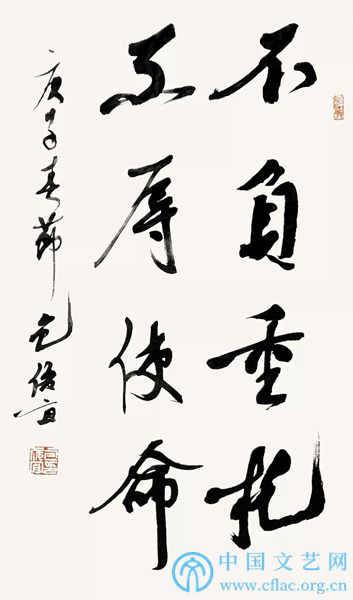 不負重托
不辱使命
庚子春節 包俊宜
中国文艺网
www.cflac.org.cn